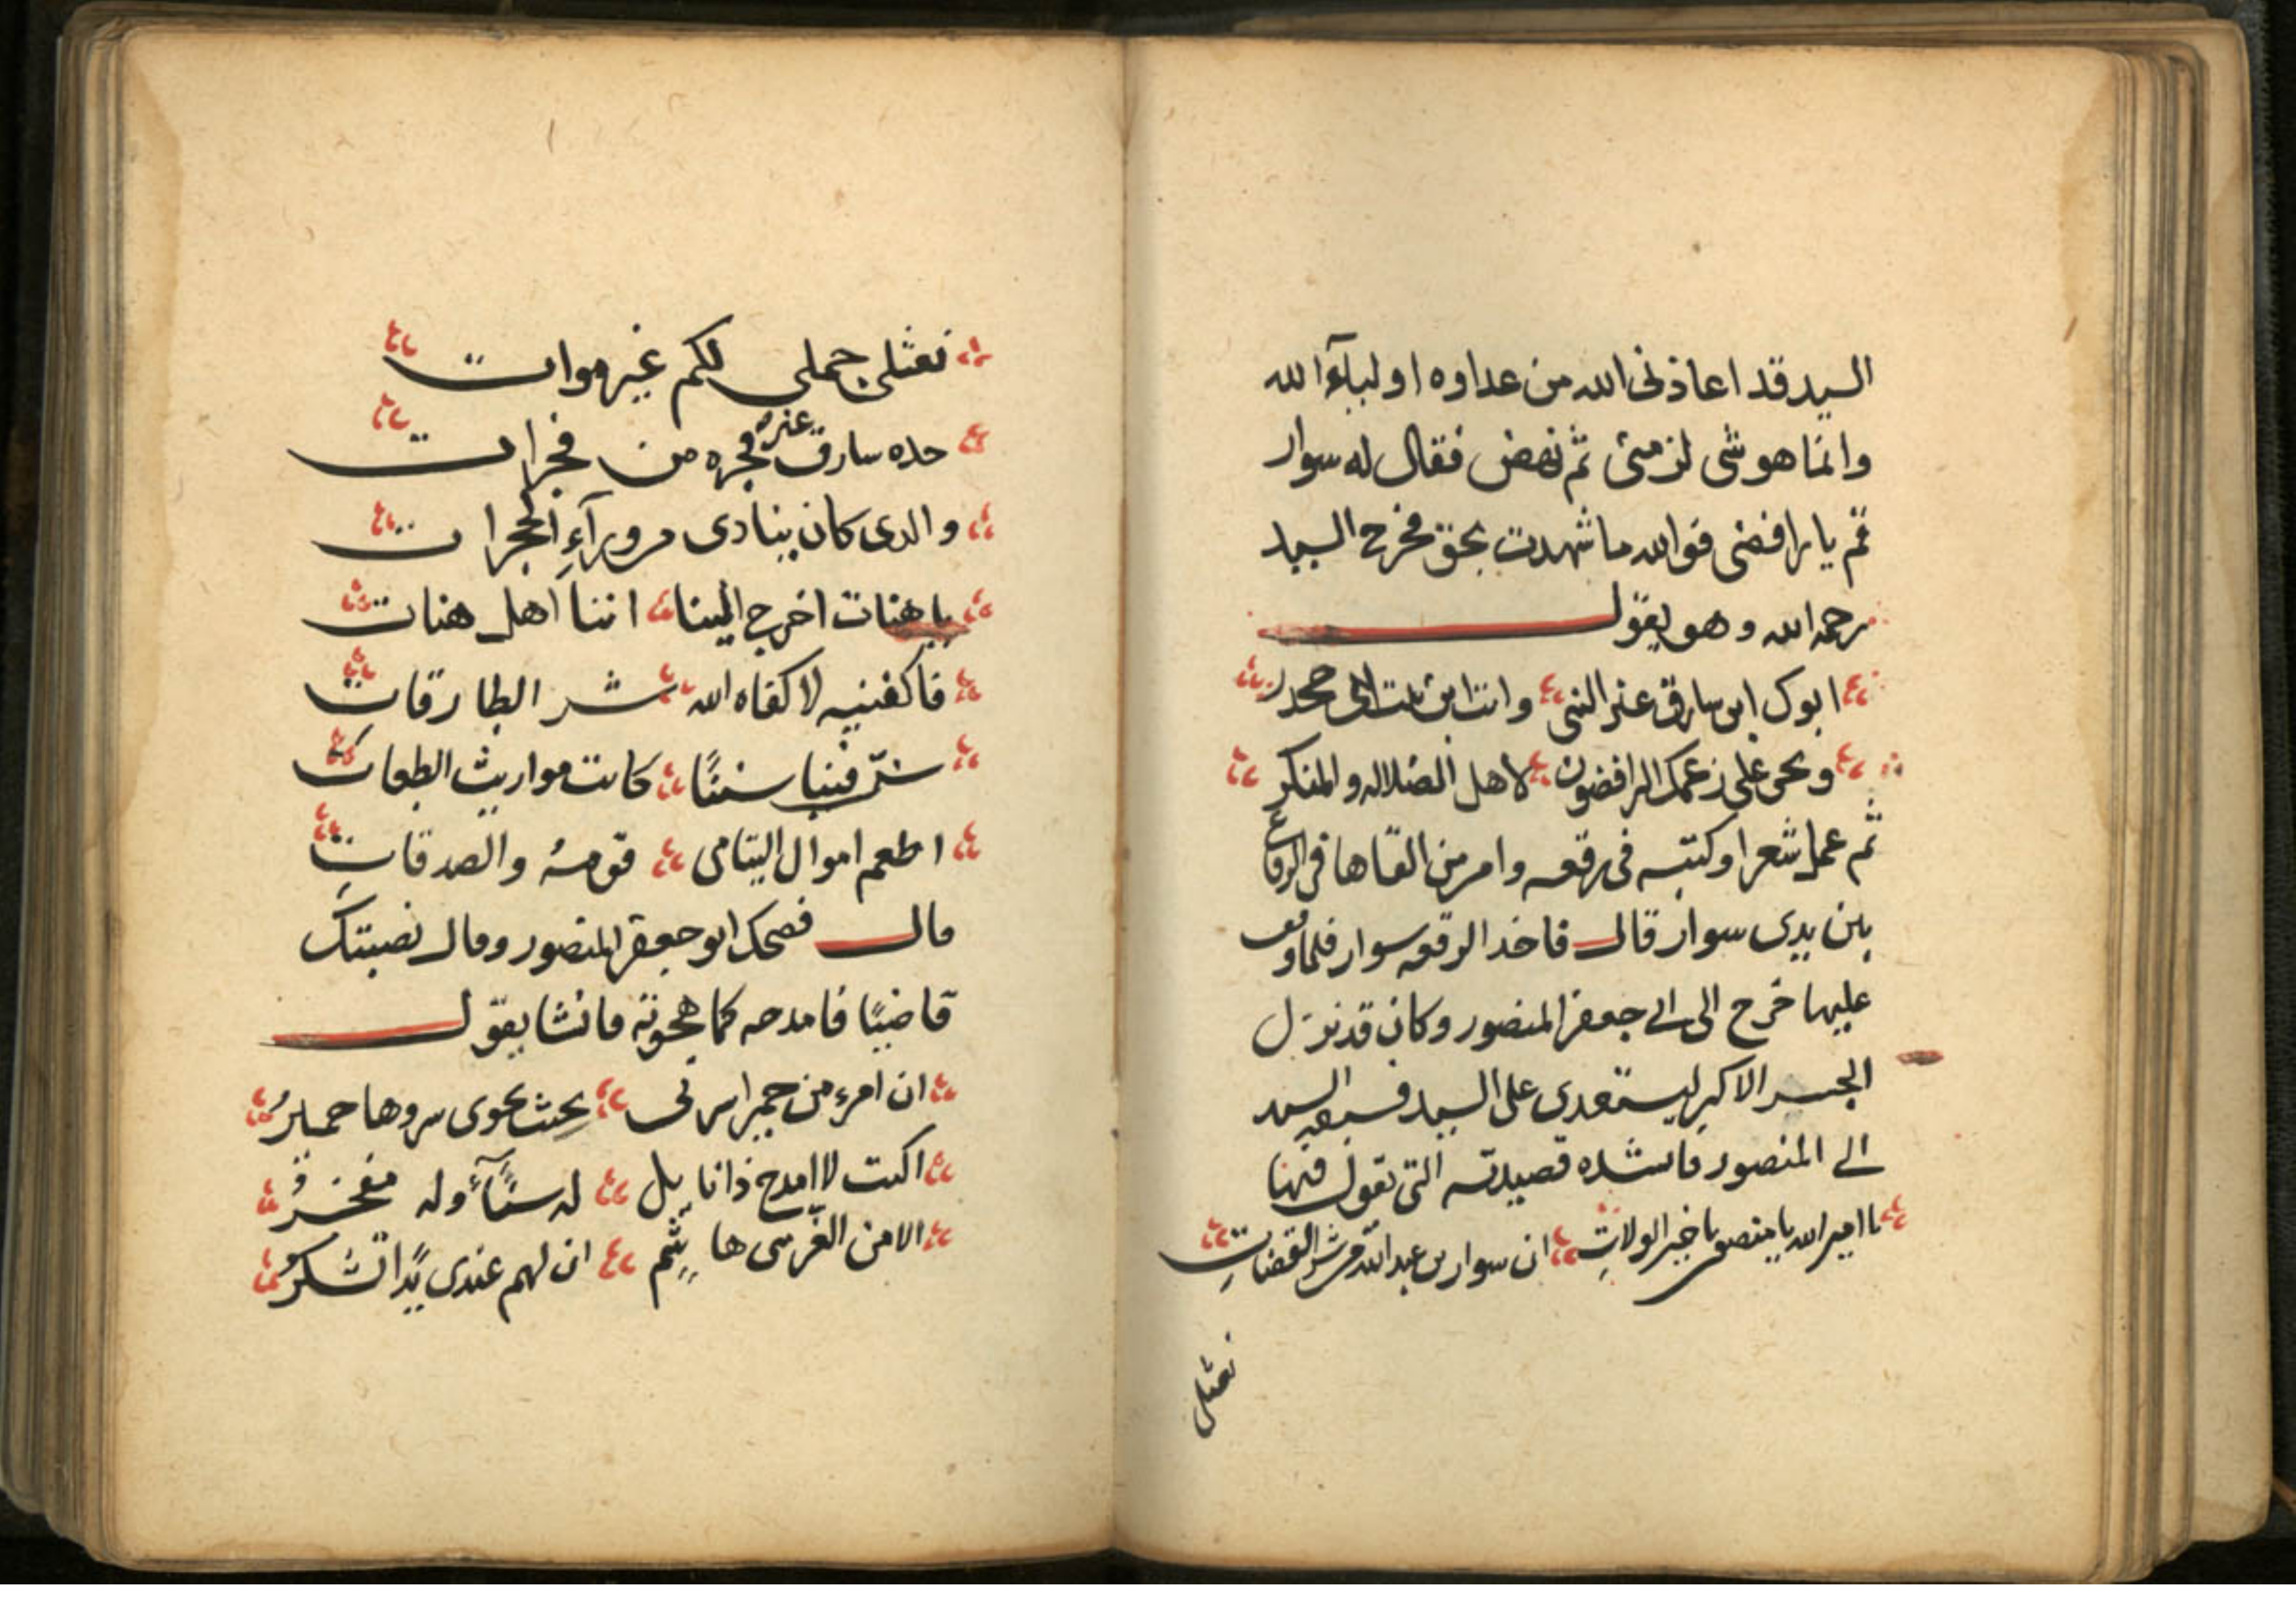 السيد قد اعاذنى الله من عداوه اوليآء الله
وانما هو شى لزمنى ثم نهض فقال له سوار
قم يا رافضى فوالله ما شهدت بحق فخرج السيد
رحمه الله وهو يقول
ابوك ابن سارق عنز النبى وانت ابن بنت ابى جحدر
ونحن على زعمك الرافضون لاهل الضلاله والمنكر
ثم عمل شعرا وكتبه فى رقعه وامر من القاها فى الرقاع
بين يدى سوار قال فاخذ الرقعه سوار فلما وقف
عليها خرج الى ابى جعفر المنصور وكان قد نزل
الجسر الاكبر ليستعدى على السيد فسبقه السيد
الى المنصور فانشده قصيدته التى يقول فيها
يا امير الله يا منصور يا خير الولات ان سوار بن عبد الله من شر القضات
نعثلى
نعثلى جملى لكم غير موات
جده سارق عنز فجره من فجرات
والدى كان ينادى من ورآء الحجرات
يا هنات اخرج الينا اننا اهل هنات
فاكفنيه لا كفاه الله شر الطارقات
سن فينا سننا كانت مواريث الطغات
اطعم اموال اليتامى قومه والصدقات
قال فضحك ابو جعفر المنصور وقال نصبتك
قاضيا فامدحه كما هجوته فانشا يقول
ان امرء من حمير اسرتى بحيث يحوى سروها حمير
اليت لا امدح ذا نايل له سنآء وله مفخر
الا من الغر بنى هاشم ان لهم عندى يدا تشكر